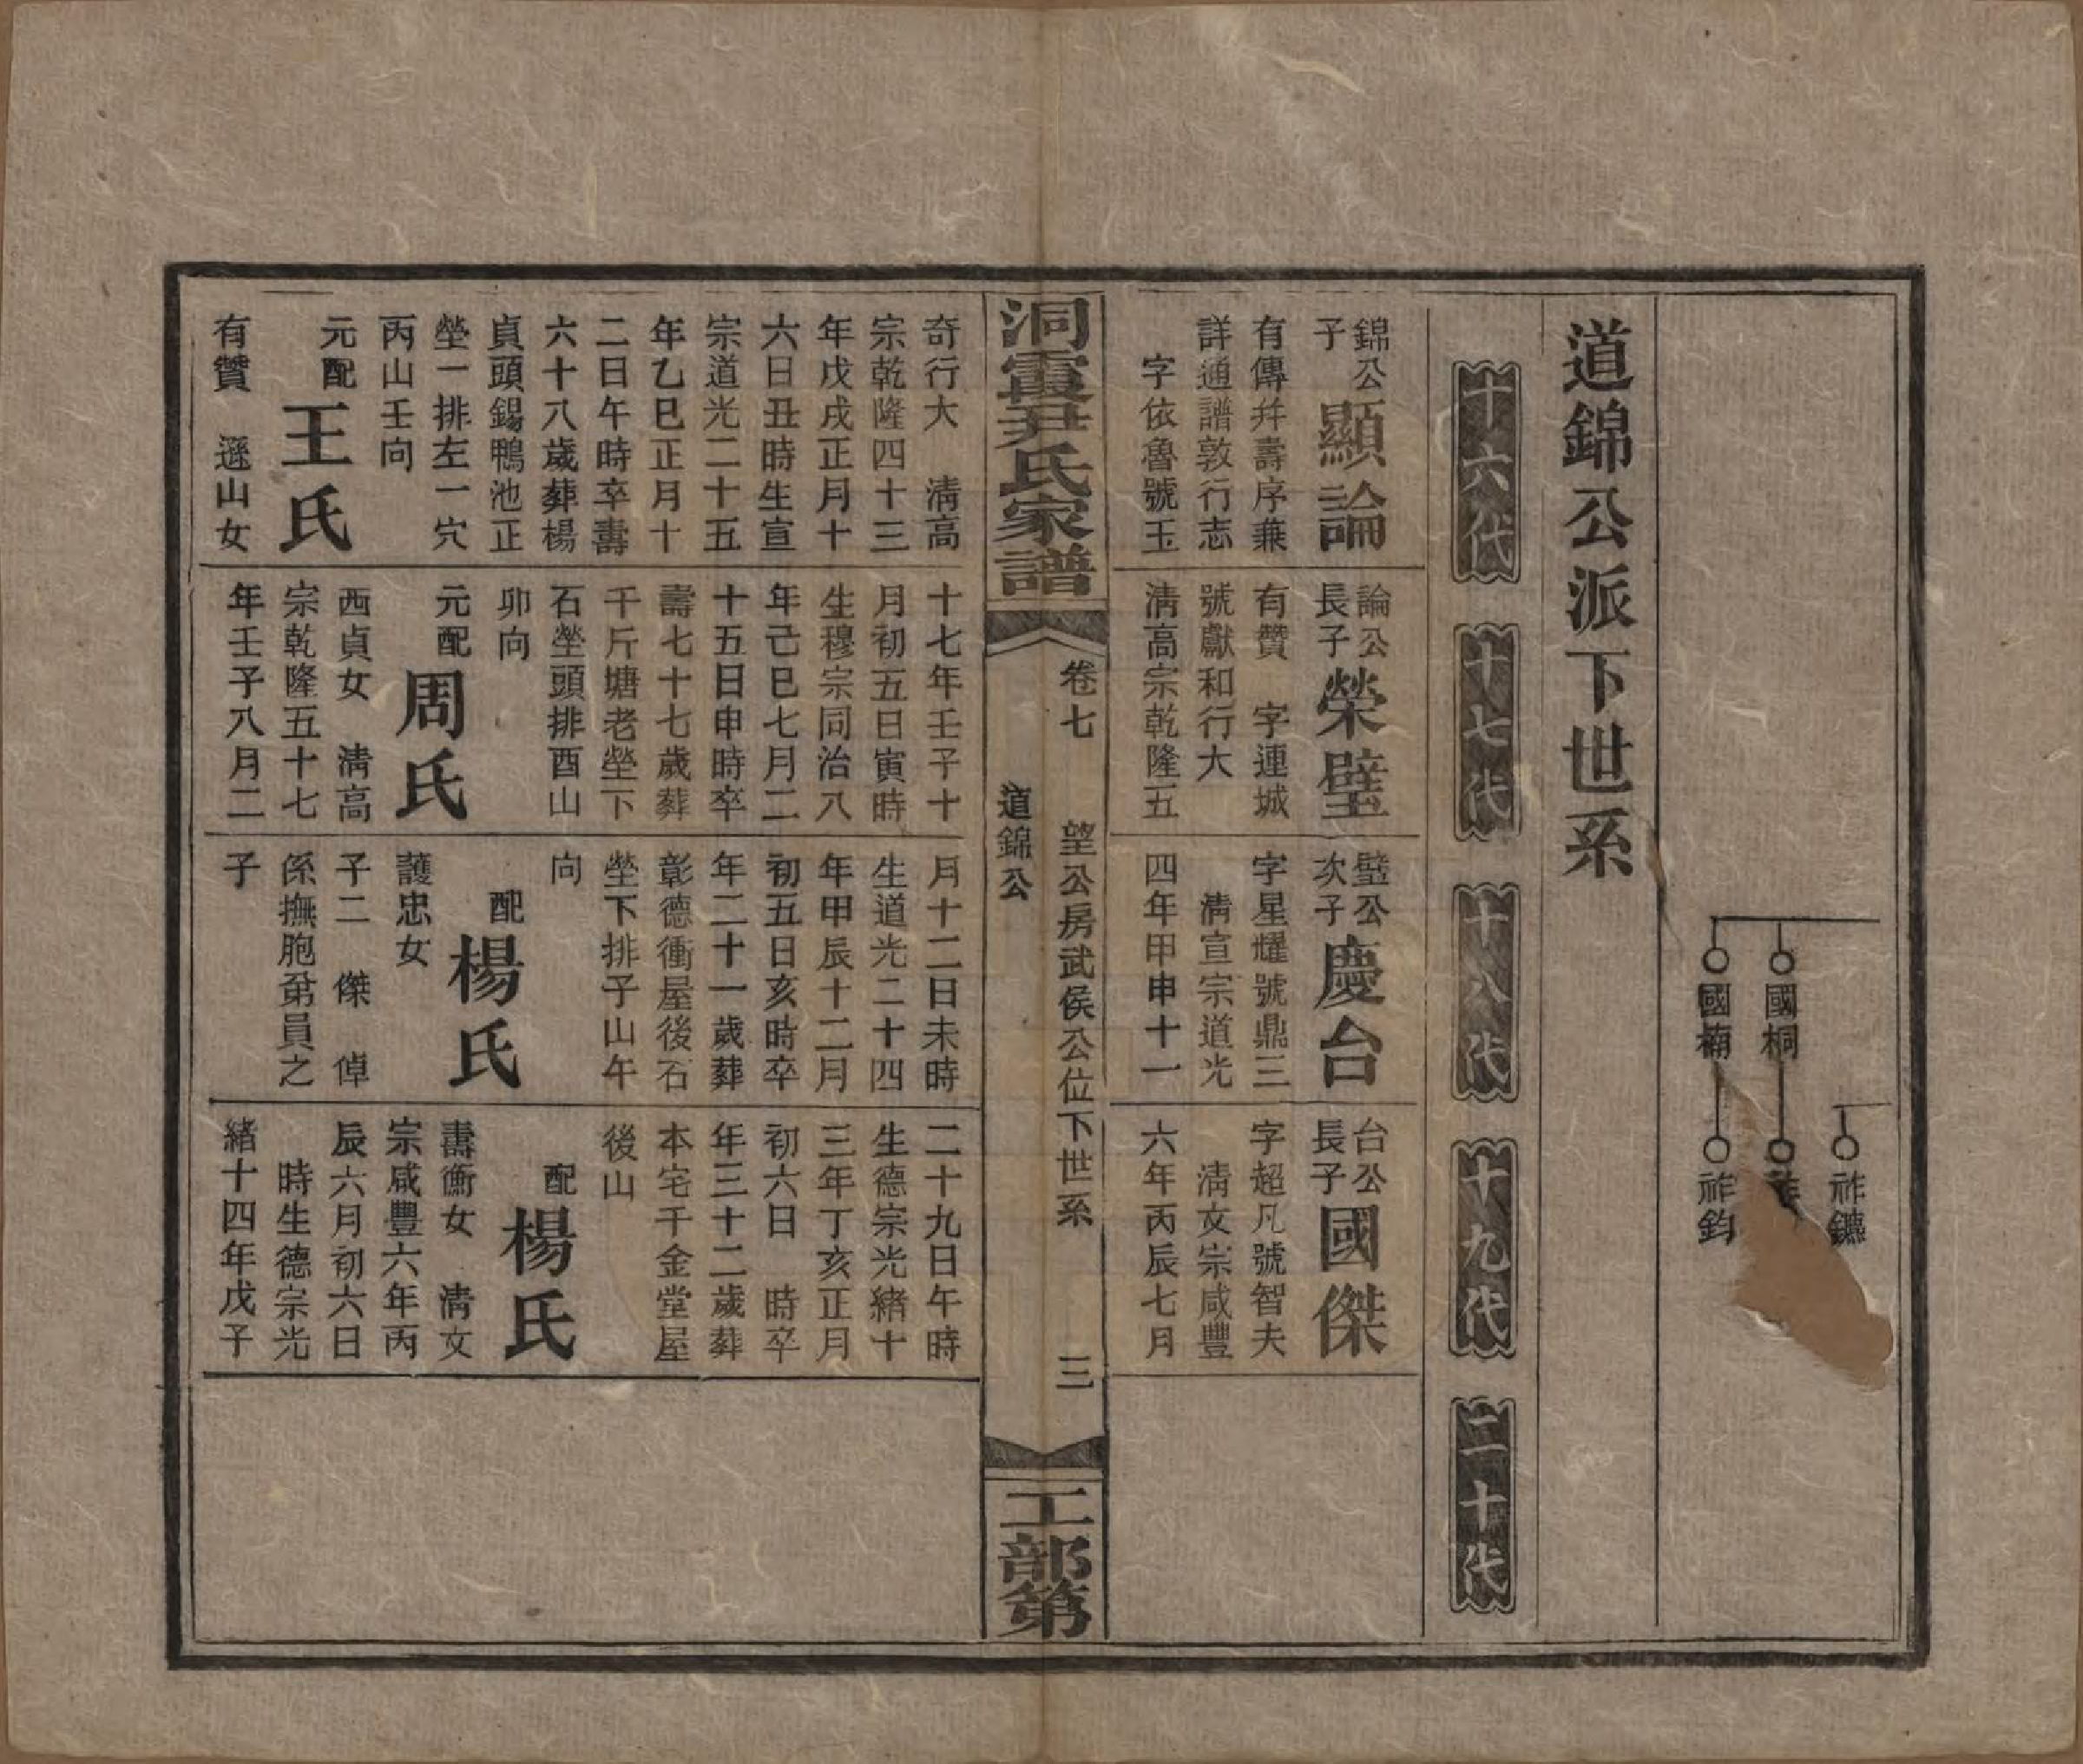 國桐
國楠
祚鑣
祚鈞
道錦公派下世系
十六代
十七代
十八代
十九代
二十代
錦公
子
顯論
有傳幷壽序兼
詳通譜敦行志
字依魯號玉
奇行大 淸高
宗乾隆四十三
年戊戌正月十
六日丑時生宣
宗道光二十五
年乙巳正月十
二日午時卒壽
六十八歲葬楊
貞頭錫鴨池正
塋一排左一穴
丙山壬向
元配
王氏
有贊 遜山女
論公
長子
榮璧
有贊 字連城
號獻和行大
淸高宗乾隆五
十七年壬子十
月初五日寅時
生穆宗同治八
年己巳七月二
十五日申時卒
壽七十七歲葬
千斤塘老塋下
石塋頭排酉山
卯向
元配
周氏
西貞女 淸高
宗乾隆五十七
年壬子八月二
璧公
次子
慶台
字星耀號鼎三
淸宣宗道光
四年甲申十一
月十二日未時
生道光二十四
年甲辰十二月
初五日亥時卒
年二十一歲葬
彰德衝屋後石
塋下排子山午
向
配
楊氏
護忠女
子二 傑 倬
係撫胞弟員之
子
台公
長子
國傑
字超凡號智夫
淸文宗咸豐
六年丙辰七月
二十九日午時
生德宗光緖十
三年丁亥正月
初六日 時卒
年三十二歲葬
本宅千金堂屋
後山
配
楊氏
壽衡女 淸文
宗咸豐六年丙
辰六月初六日
時生德宗光
緖十四年戊子
洞霞尹氏家譜
卷七 望公房武侯公位下世系 三
道錦公
工部第